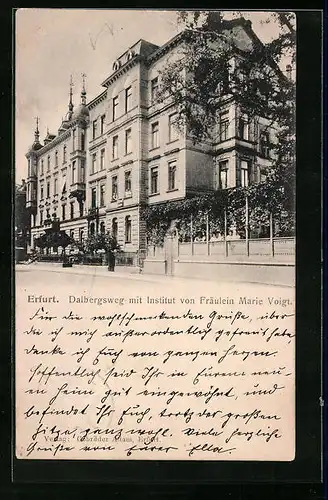 Erfurt. Dalbergsweg mit Institut von Fräulein Marie Voigt.
Für die wohlschmeckenden Grüße, über
die ich mich außerordentlich gefreut habe,
danke ich Euch von ganzem Herzen.
Hoffentlich seid Ihr in Eurem neu-
en Heim gut eingewöhnt, und
befindet Ihr Euch, trotz der großen
Hitze, ganz wohl. Viele herzliche
Grüße von Eurer Ella.
Verlag: Gebrüder Adam, Erfurt.